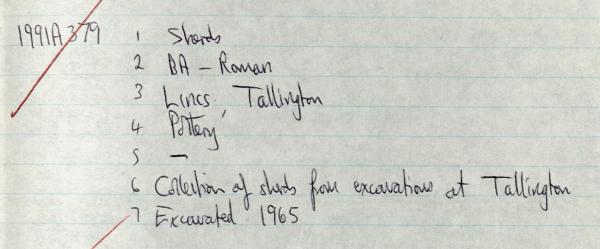 1991A379 1 Sherds
2 BA - Roman
3 Lincs, Tallington
4 Pottery
5 -
6 Collection of sherds from excavations at Tallington
7 Excavated 1965